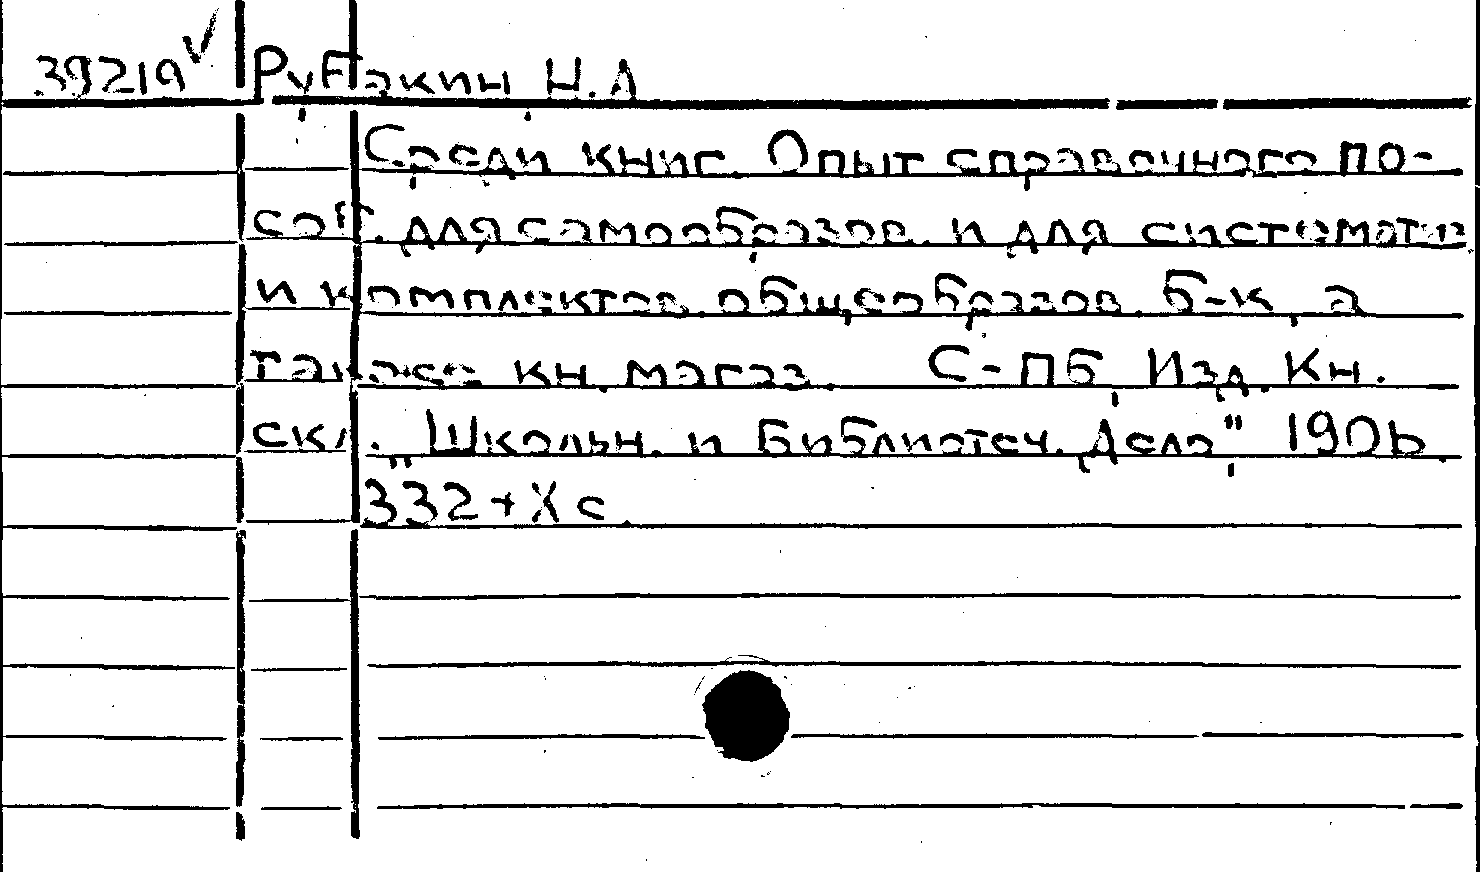 39219 Рубакин, Н.А
Среди книг. Опыт справочного по-
соб. для самообразов. и для системотиз
и комплектов. общеобразов. б-к, а
также кн. магаз. С-ПБ, Изд. Кн.
скл. „Школьн. и Библиотеч. Дело", 1906.
332+X с.